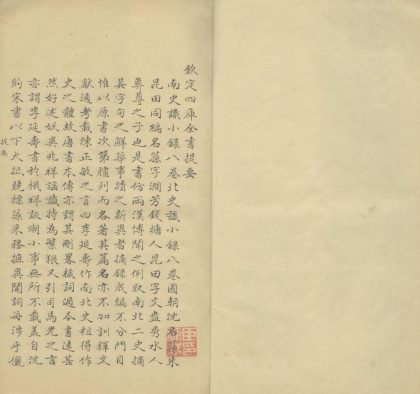 欽定四庫全書提要
南史識小錄八卷北史識小錄八卷國朝沈名蓀朱
昆田同編名蓀字澗芳錢塘人昆田字文盎秀水人
彝尊之子也是書仿兩漢博聞之例取南北二史摘
其字句之鮮華事蹟之新異者摘錄成編不分門目
惟以原書次第臚列而各著其篇名亦不加訓釋文
獻通考載陳正敏之言曰李延壽作南北史粗得作
史之體故唐書本傳亦謂其刪畧穢詞過本書遠甚
然好述妖異兆祥謠讖特為繁猥又引司馬光之言
亦謂李延壽書於禨祥詼嘲小事無所不載蓋自沈
約宋書以下大抵競標藻采務摭異聞詞每涉乎儷
提要